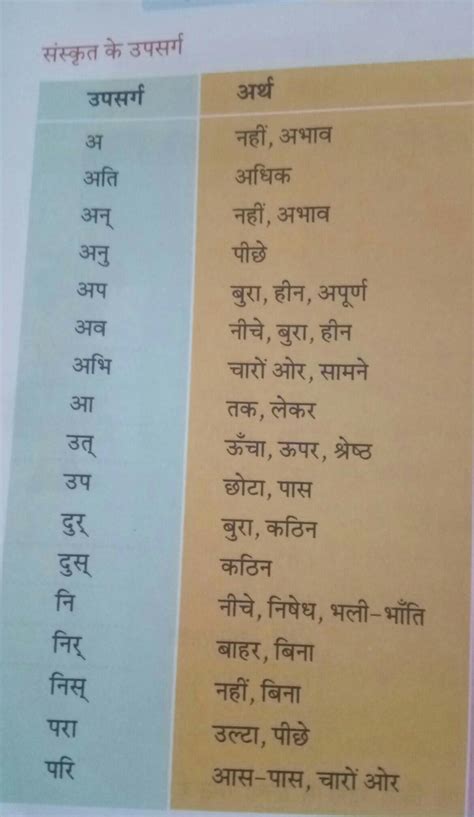 संस्कृत के उपसर्ग
उपसर्ग अर्थ
अ नहीं, अभाव
अति अधिक
अन् नहीं, अभाव
अनु पीछे
अप बुरा, हीन, अपूर्ण
अव नीचे, बुरा, हीन
अभि चारों ओर, सामने
आ तक, लेकर
उत् ऊँचा, ऊपर, श्रेष्ठ
उप छोटा, पास
दुर् बुरा, कठिन
दुस् कठिन
नि नीचे, निषेध, भली-भाँति
निर् बाहर, बिना
निस् नहीं, बिना
परा उल्टा, पीछे
परि आस-पास, चारों ओर